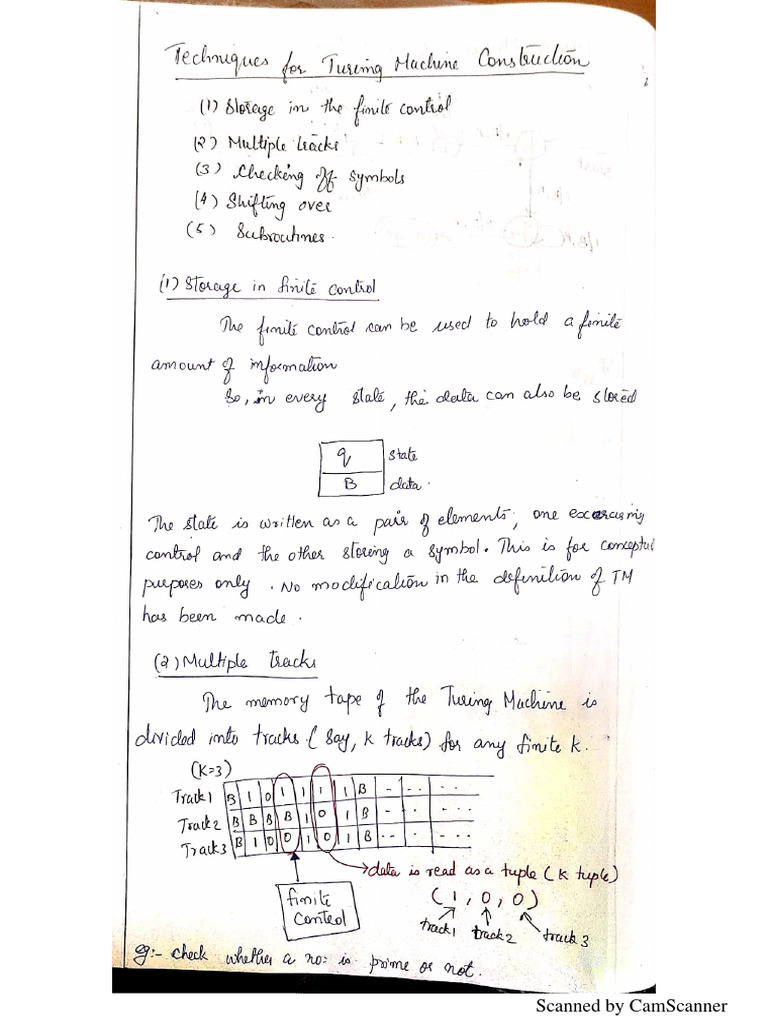 Techniques for Turing Machine Construction
(1) Storage in the finite control
(2) Multiple tracks
(3) Checking off symbols
(4) Shifting over
(5) Subroutines.
(1) Storage in finite control
The finite control can be used to hold a finite
amount of information
So, in every state, the data can also be stored
q state
B data.
The state is written as a pair of elements, one
control and the other storing a symbol. This is for conceptu
purposes only. No modification in the definition of TM
has been made.
(2) Multiple tracks
The memory tape of the Turing Machine is
divided into tracks (say, k tracks) for any finite k.
(K=3)
Track1 B 1 0 1 1 1 1 B - - - - - -
Track2 B B B B 1 0 1 B - - - - - -
Track3 B 1 0 0 1 0 1 B - - - - - - -
→data is read as a tuple (K tuple)
finite
control
(1, 0, 0)
track1 track2 track3
eg:- check whether a no: is prime or not.
Scanned by CamScanner